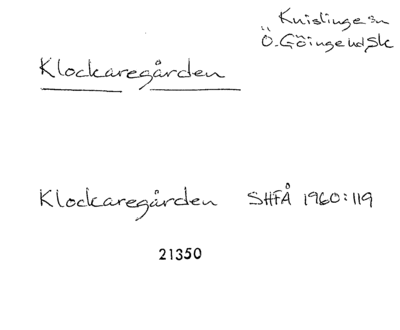 Knislinge sn
Ö. Göinge hd Sk
Klockaregården
Klockaregården SHFÅ 1960:119
21350